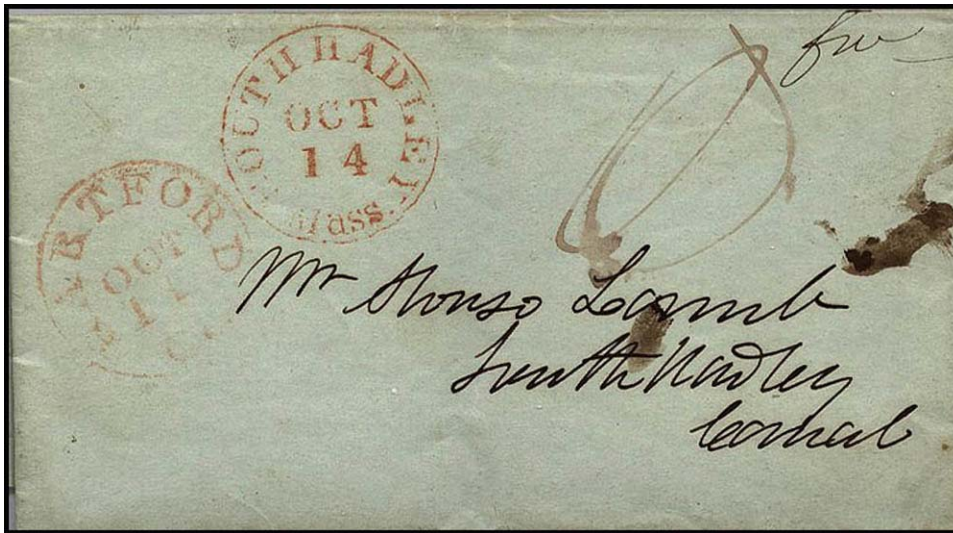 SOUTH HADLEY
OCT
14
Mass.
HARTFORD
OCT
Mr Alonso Lamb
South Hadley
Canal